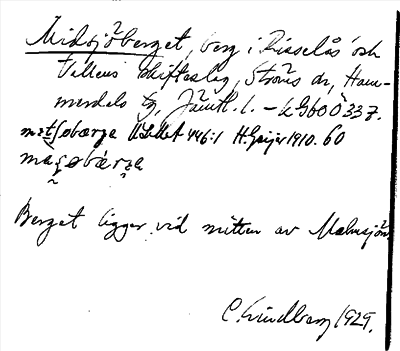 Midsjöberget, berg i Risselås och
Vallens skifteslag, Ströms sn, Ham-
merdals tg, Jämtl. l. – 
mɛtʃøbærga ULMA 446:1 H. Geijer 1910. 60
Berget ligger vid mitten av Malmsjön.
C. Lindberg 1929.